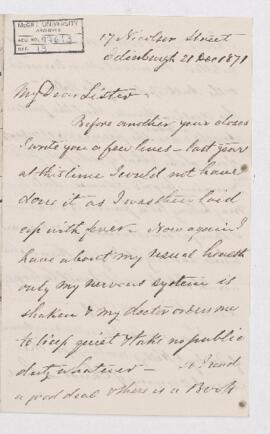 McGILL UNIVERSITY
ARCHIVES
ACC. NO.
REF.
17 Nicolson Street
Edinburgh 21 Dec 1871
My Dear Sister
Before another year closes
I write you a few lines - last year
at this time I could not have
done it as I was then laid
up with fever - Now again I
have about my usual health
only my nervous system is
shaken & my doctor orders me
to keep quiet & take no public
duty whatever - I read
a good deal & there is a Book